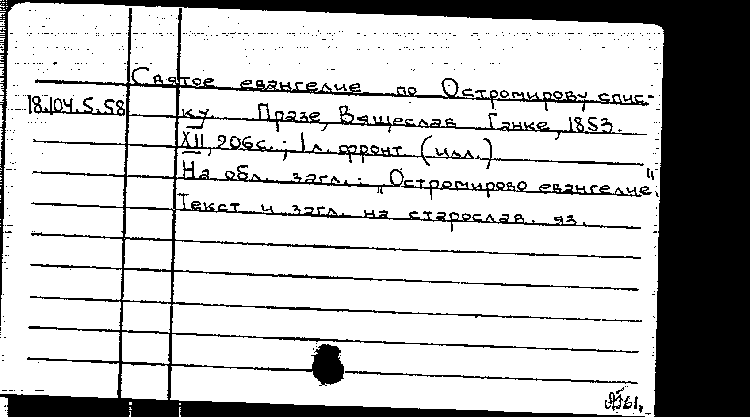 Святое евангелие по Остромирову спис-
18.104.5.58 ку. Празе, Вящеслав Ганке, 1853.
XII, 206 с.; 1 л. фронт. (илл.)
На обл. загл.: "Остромирово евангелие."
Текст и загл. на старослав. яз.